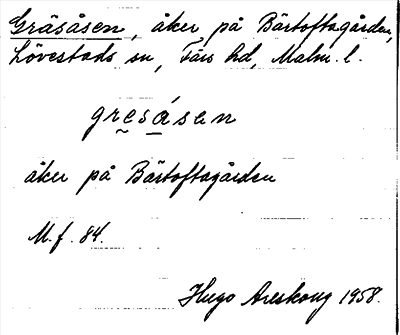 Gräsåsen, åker på Bärtoftagården,
Lövestads sn, Färs hd, Malm. l.
gresásen
åker på Bärtoftagården
M.f. 84.
Hugo Areskoug 1958.